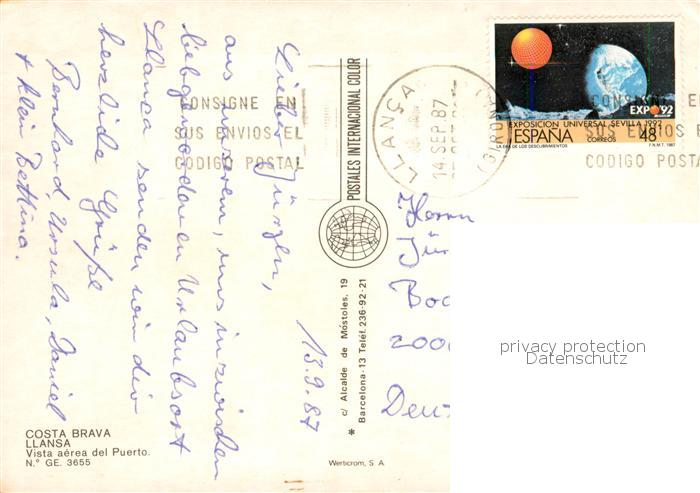 13.9.87
Lieber Jürgen,
aus unserem, uns inzwischen
liebgewordenen Urlaubsort
Llanca senden wir dir
herzliche Grüße
Bernhard, Ursula, Daniel
+ klein Bettina.
COSTA BRAVA
LLANSA
Vista aérea del Puerto.
N.° GE. 3655
POSTALES INTERNACIONAL COLOR
c/ Alcalde de Móstoles, 19
Barcelona-13 Teléf. 236-92-21
Werticrom, S. A.
CONSIGNE EN
SUS ENVIOS EL
CODIGO POSTAL
LLANÇA
14 SEP 87
EXPO'92
EXPOSICION UNIVERSAL SEVILLA 1992
ESPAÑA 48
CORREOS
LA ERA DE LOS DESCUBRIMIENTOS
F.N.M.T. 1987
CONSIGNE EN
SUS ENVIOS E
CODIGO POSTA
Herrn
Jür
Deut
privacy protection
Datenschutz